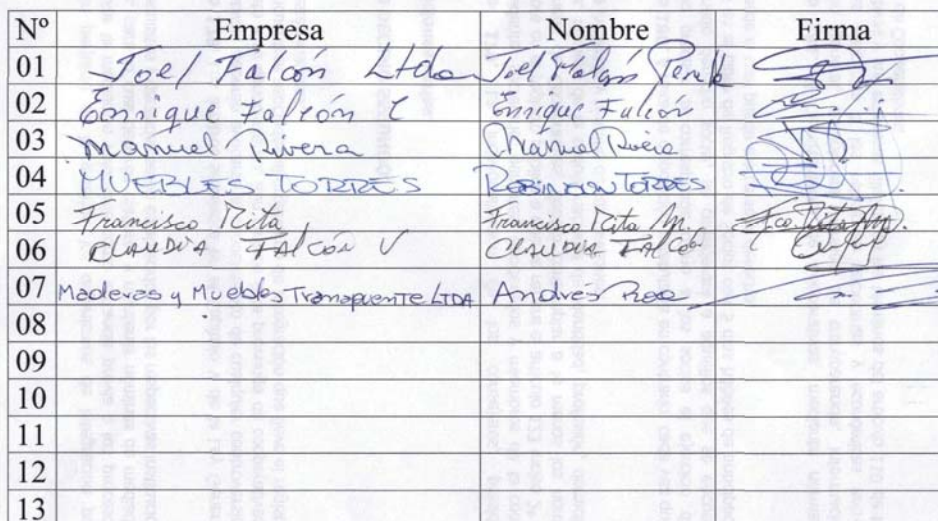 Nº Empresa Nombre Firma
01 Joel Falcón Ltda Joel Falcón
02 Enrique Falcón C Enrique Falcón
03 Manuel Rivera Manuel Rivera
04 MUEBLES TORRES ROBINSON TORRES
05 Francisco Pita Francisco Pita M. Fco. Pita M.
06 CLAUDIA FALCÓN V CLAUDIA FALCÓN
07 Maderas y Muebles Transpuente LTDA Andrés
08
09
10
11
12
13